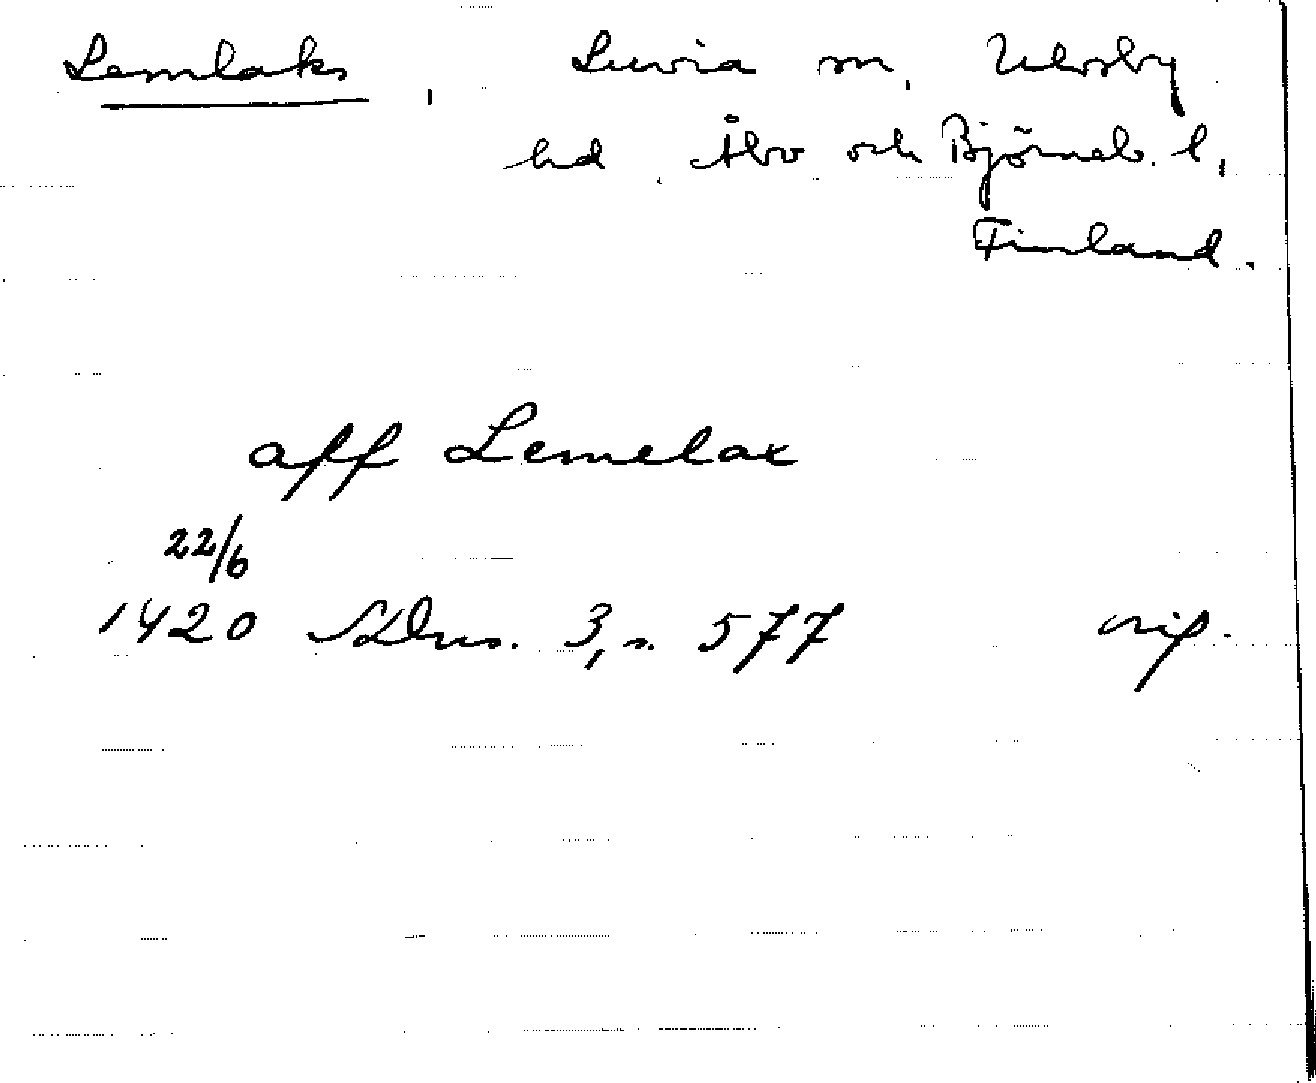 Lemlaks, Luvia sn, Ulvsby
hd, Åbo och Björneb. l,
Finland.
aff Lemelax
22/6
1420 SDns. 3, s. 577 orig.